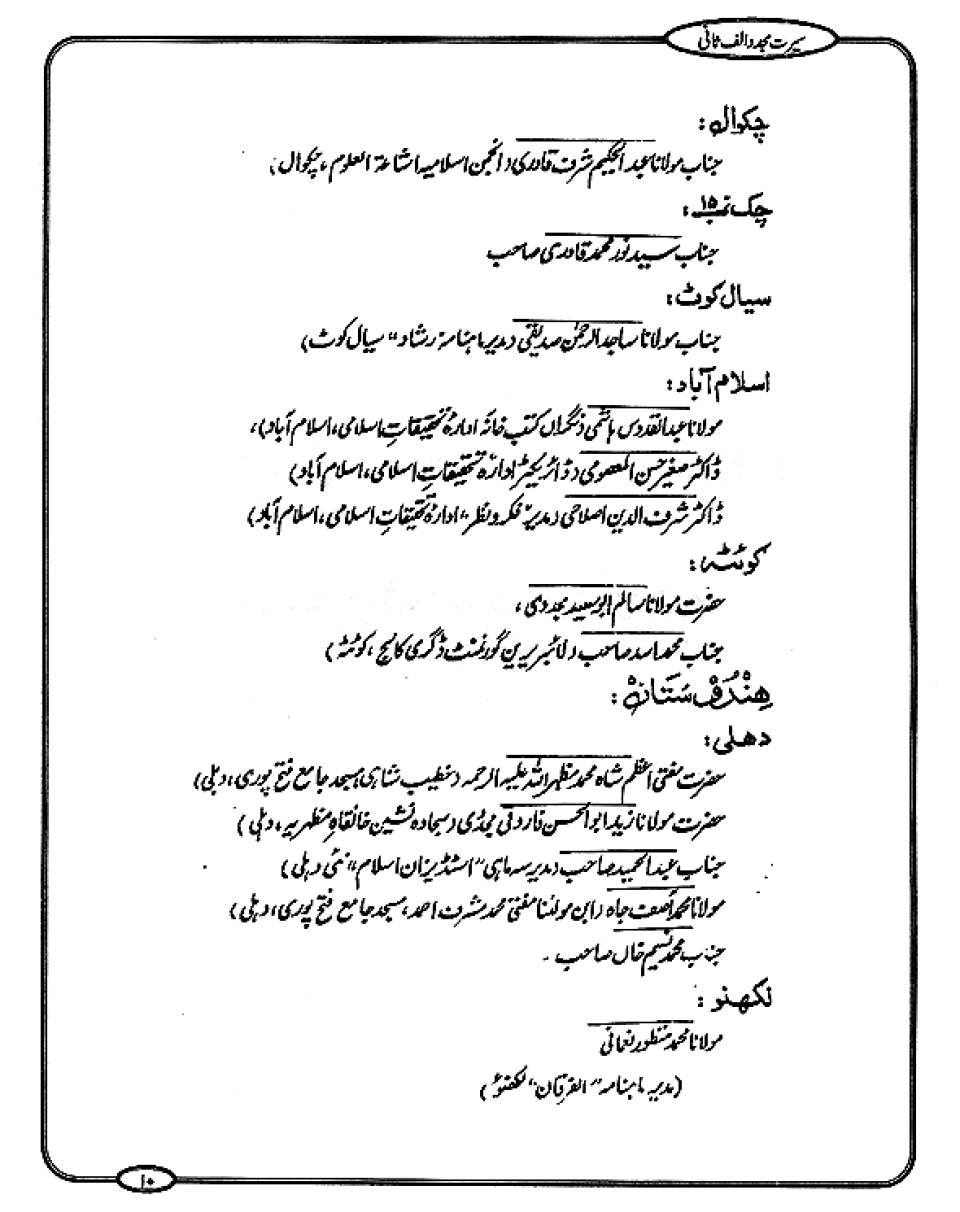 سیرت مجدد الف ثانی
چکوال:
جناب مولانا عبدالحکیم شرف قادری (انجمن اسلامیہ اشاعۃ العلوم، چکوال)
چک نمبر ۱۵:
جناب سید نور محمد قادری صاحب
سیال کوٹ:
جناب مولانا ساجد الرحمٰن صدیقی (مدیر ماہنامہ "رشاد" سیال کوٹ)
اسلام آباد:
مولانا عبدالقدوس ہاشمی (نگراں کتب خانہ ادارۂ تحقیقاتِ اسلامی، اسلام آباد)،
ڈاکٹر صغیر حسن المعصومی (ڈائریکٹر ادارۂ تحقیقاتِ اسلامی، اسلام آباد)
ڈاکٹر شرف الدین اصلاحی (مدیر "فکر و نظر" ادارۂ تحقیقاتِ اسلامی، اسلام آباد)
کوئٹہ:
حضرت مولانا سالم ابو سعید مجددی،
جناب محمد اسد صاحب (لائبریرین گورنمنٹ ڈگری کالج، کوئٹہ)
ھِنْدُوْسْتَانْ:
دھلی:
حضرت مفتی اعظم شاہ محمد مظہر اللہ علیہ الرحمہ (خطیب شاہی مسجد جامع فتح پوری، دہلی)
حضرت مولانا زید ابوالحسن فاروقی مجددی (سجادہ نشین خانقاہِ مظہریہ، دہلی)
جناب عبدالحمید صاحب (مدیر سہ ماہی "اسٹڈیز ان اسلام" نئی دہلی)
مولانا محمد آصف جاہ (ابن مولٰنا مفتی محمد مشرف احمد، مسجد جامع فتح پوری، دہلی)
جناب محمد نسیم خاں صاحب ۔
لکھنو:
مولانا محمد منظور نعمانی
(مدیر ماہنامہ "الفرقان" لکھنؤ)
۱۰